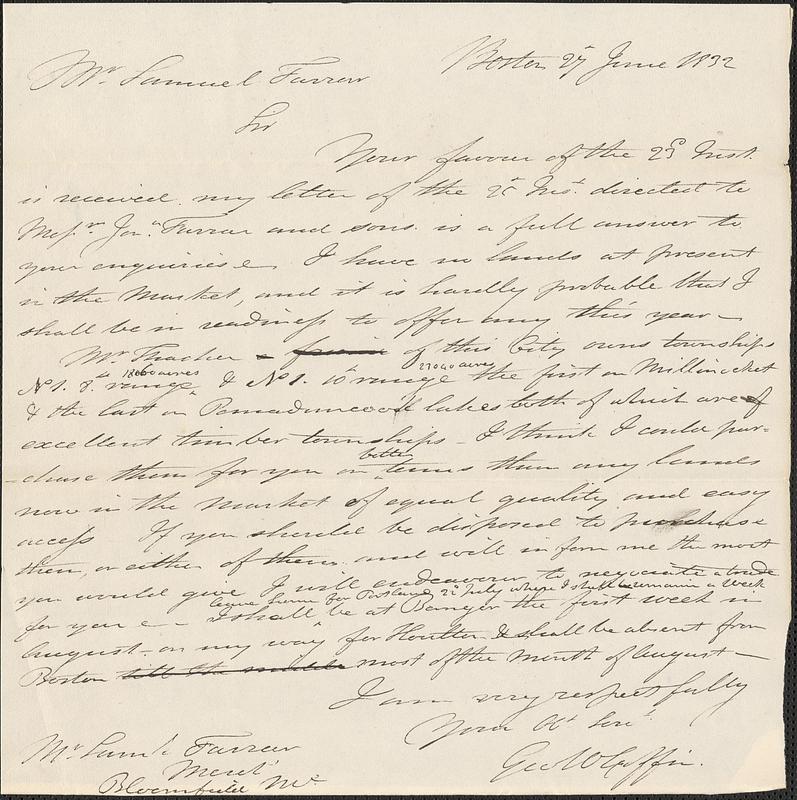 Boston 27 June 1832
Mr. Samuel Farrar
Sir
Your favour of the 23d Inst.
is received. my letter of the 25 Inst. directed to
Messrs. Jona. Farrar and sons is a full answer to
your enquiries. I have no lands at present
in the Market, and it is hardly probable that I
shall be in readiness to offer any this year —
Mr Thacher of this City owns townships
18060 acres 27040 acres
No 1. 8th range & No 1. 10th range the first on Millinocket
& the last on lakes both of which are of
excellent timber townships — I think I could pur-
better
chase them for you on terms than any lands
now in the market of equal quality and easy
access If you should be disposed to purchase
them, or either of them, and will inform me the most
you would give I will endeavour to negociate a trade
leave home for Portland 22 July where I shall remain a week
for you — I shall be at Bangor the first week in
August — on my way for Houlton & shall be absent from
Boston till the middle most of the Month of August —
I am very respectfully
Your Obt Servt
Geo W Coffin.
Mr Saml Farrar
Mercht
Bloomfield Me